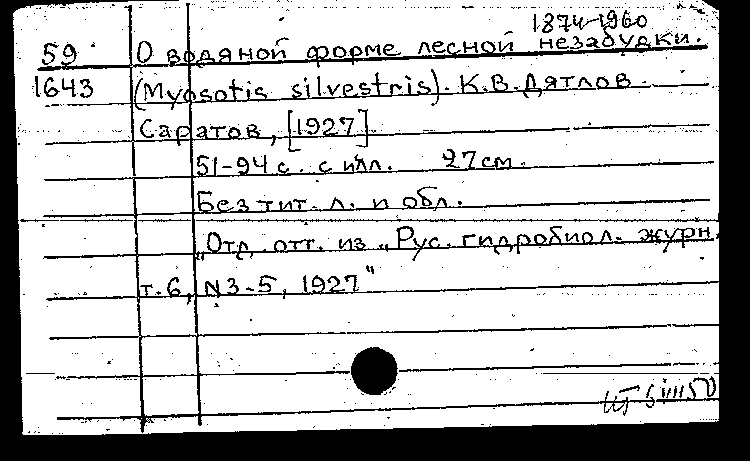 1874-1960
59 О водяной форме лесной незабудки.
1643 (Myosotis silvestris). К.В. Дятлов.
Саратов, [1927].
51-94 с. с илл. 27 см.
Без тит. л. и обл.
„Отд. отт. из „Рус. гидробиол. журн.
т. 6, N 3-5, 1927"